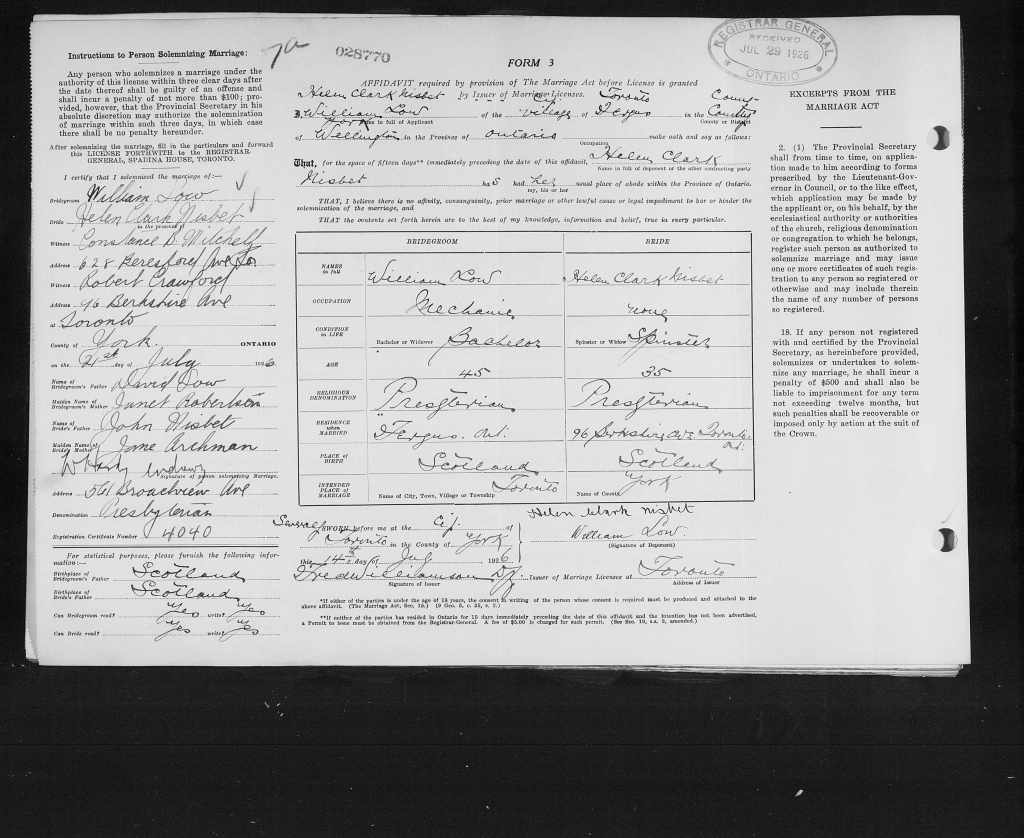 Instructions to Person Solemnizing Marriage:
Any person who solemnizes a marriage under the
authority of this license within three clear days after
the date thereof shall be guilty of an offense and
shall incur a penalty of not more than $100; pro-
vided, however, that the Provincial Secretary in his
absolute discretion may authorize the solemnization
of marriage within such three days, in which case
there shall be no penalty hereunder.
After solemnizing the marriage, fill in the particulars and forward
this LICENSE FORTHWITH to the REGISTRAR-
GENERAL, SPADINA HOUSE, TORONTO.
I certify that I solemnized the marriage of:—
Bridegroom William Low
Bride Helen Clark Nisbet
in the presence of
Witness Constance B Mitchell
Address 628 Beresford Ave
Witness Robert Crawford
Address 96 Berkshire Ave
at Toronto
County of York. ONTARIO
on the 21st day of July 1926
Name of Bridegroom's Father David Low
Maiden Name of Bridegroom's Mother Janet Robertson
Name of Bride's Father John Nisbet
Maiden Name of Bride's Mother Jane Archman
Signature of person solemnizing Marriage.
Address 561 Broadview Ave
Denomination Presbyterian
Registration Certificate Number 4040
For statistical purposes, please furnish the following infor-
mation:—
Birthplace of Bridegroom's Father Scotland
Birthplace of Bride's Father Scotland
Can Bridegroom read? Yes write? Yes
Can Bride read? Yes write? Yes
7a
028770
FORM 3
REGISTRAR GENERAL
RECEIVED
JUL 29 1926
ONTARIO
AFFIDAVIT required by provision of The Marriage Act before License is granted
by Issuer of Marriage Licenses.
Helen Clark Nisbet City Toronto County
I, William Low of the Village of Fergus in the County
Name in full of Applicant County or District
York
of Wellington in the Province of Ontario make oath and say as follows:
Occupation
That, for the space of fifteen days** immediately preceding the date of this affidavit, Helen Clark
Name in full of deponent or the other contracting party
Nisbet has had her usual place of abode within the Province of Ontario.
my, his or her
THAT, I believe there is no affinity, consanguinity, prior marriage or other lawful cause or legal impediment to bar or hinder the
solemnization of the marriage, and
THAT the contents set forth herein are to the best of my knowledge, information and belief, true in every particular.
BRIDEGROOM BRIDE
NAMES in full William Low Helen Clark Nisbet
OCCUPATION Mechanic none
CONDITION in LIFE Bachelor or Widower Bachelor Spinster or Widow Spinster
AGE 45 35
RELIGIOUS DENOMINATION Presgterian Presgterian
RESIDENCE when MARRIED Fergus. Ont. 96 Berkshire Ave Toronto Ont.
PLACE of BIRTH Scotland Scotland
INTENDED PLACE of MARRIAGE Name of City, Town, Village or Township Toronto Name of County York
Severally SWORN before me at the City of Helen Clark Nisbet
Toronto in the County of York William Low.
(Signature of Deponent)
this 14th day of July 1926
Fred Williamson Issuer of Marriage Licenses at Toronto
Signature of Issuer Address of Issuer
*If either of the parties is under the age of 18 years, the consent in writing of the person whose consent is required must be produced and attached to the
above affidavit. (The Marriage Act, Sec. 15.) (9 Geo. 5, c. 35, s. 2.)
**If neither of the parties has resided in Ontario for 15 days immediately preceding the date of this affidavit and the intention has not been advertised,
a Permit to issue must be obtained from the Registrar-General. A fee of $5.00 is charged for such permit. (See Sec. 19, s.s. 2, amended.)
EXCERPTS FROM THE
MARRIAGE ACT
2. (1) The Provincial Secretary
shall from time to time, on applica-
tion made to him according to forms
prescribed by the Lieutenant-Gov-
ernor in Council, or to the like effect,
which application may be made by
the applicant or, on his behalf, by the
ecclesiastical authority or authorities
of the church, religious denomination
or congregation to which he belongs,
register such person as authorized to
solemnize marriage and may issue
one or more certificates of such regis-
tration to any person so registered or
otherwise and may include therein
the name of any number of persons
so registered.
18. If any person not registered
with and certified by the Provincial
Secretary, as hereinbefore provided,
solemnizes or undertakes to solem-
nize any marriage, he shall incur a
penalty of $500 and shall also be
liable to imprisonment for any term
not exceeding twelve months, but
such penalties shall be recoverable or
imposed only by action at the suit of
the Crown.